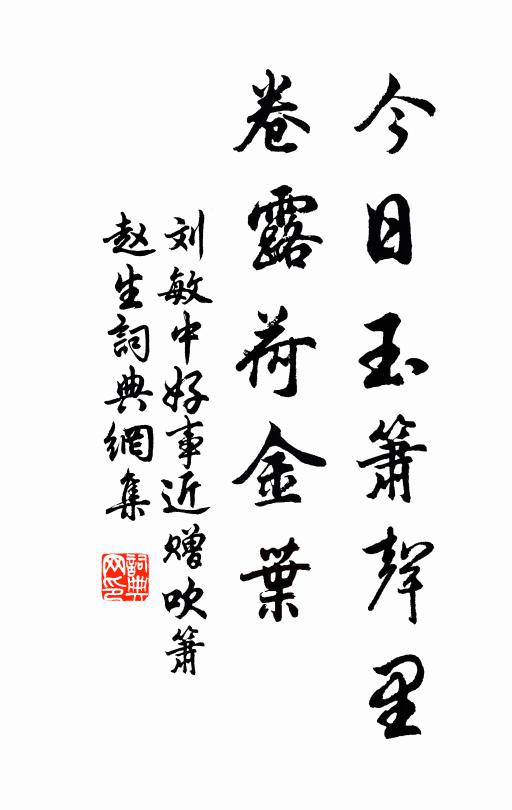 今日玉箫聲里
卷露荷金葉
刘敏中好事近赠吹箫
赵生詞典網集
詞典網印